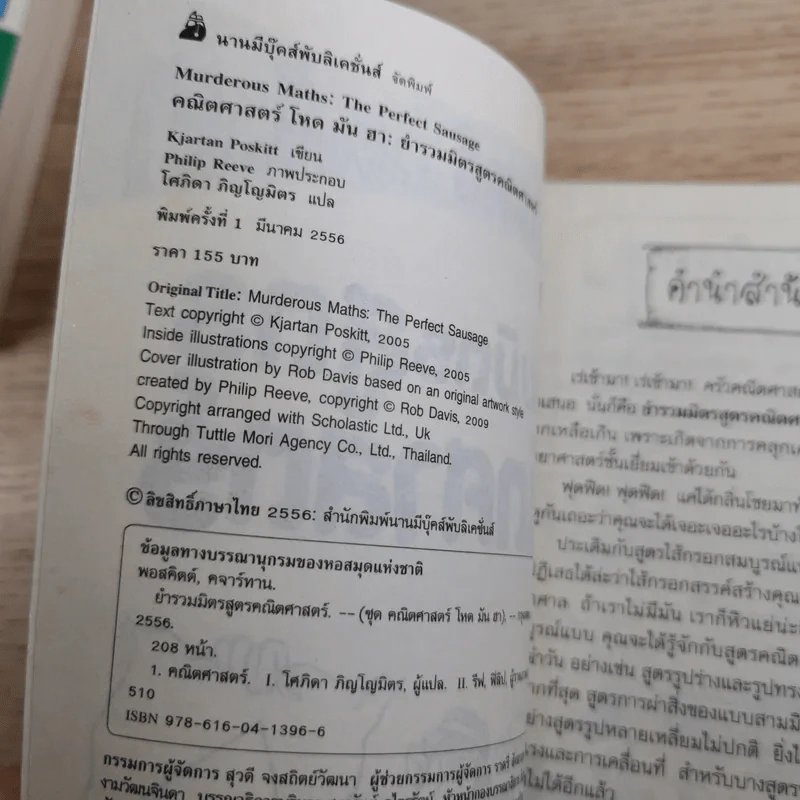 นานมีบุ๊คส์พับลิเคชั่นส์ จัดพิมพ์
Murderous Maths: The Perfect Sausage
คณิตศาสตร์ โหด มัน ฮา: ยำรวมมิตรสูตรคณิตศาสตร์
Kjartan Poskitt เขียน
Philip Reeve ภาพประกอบ
โศภิดา ภิญโญมิตร แปล
พิมพ์ครั้งที่ 1 มีนาคม 2556
ราคา 155 บาท
Original Title: Murderous Maths: The Perfect Sausage
Text copyright © Kjartan Poskitt, 2005
Inside illustrations copyright © Philip Reeve, 2005
Cover illustration by Rob Davis based on an original artwork style
created by Philip Reeve, copyright © Rob Davis, 2009
Copyright arranged with Scholastic Ltd., Uk
Through Tuttle Mori Agency Co., Ltd., Thailand.
All rights reserved.
© ลิขสิทธิ์ภาษาไทย 2556: สำนักพิมพ์นานมีบุ๊คส์พับลิเคชั่นส์
ข้อมูลทางบรรณานุกรมของหอสมุดแห่งชาติ
พอสคิตต์, คจาร์ทาน.
ยำรวมมิตรสูตรคณิตศาสตร์. -- (ชุด คณิตศาสตร์ โหด มัน ฮา). --
2556.
208 หน้า.
1. คณิตศาสตร์. I. โศภิดา ภิญโญมิตร, ผู้แปล. II. รีฟ, ฟิลิป,
510
ISBN 978-616-04-1396-6
กรรมการผู้จัดการ สุวดี จงสถิตย์วัฒนา ผู้ช่วยกรรมการผู้จัดการ
งามวัฒนจินดา
คำนำสำนั
เร่เข้ามา! เร่เข้ามา! ครัวคณิตศาส
าเสนอ นั่นก็คือ ยำรวมมิตรสูตรคณิตศา
กเหลือเกิน เพราะเกิดจากการคลุกเค
ยาศาสตร์ชั้นเยี่ยมเข้าด้วยกัน
ฟุดฟิด! ฟุดฟิด! แค่ได้กลิ่นโชยมาท
ดูกันเถอะว่าคุณจะได้เจอะเจออะไรบ้างใ
ประเดิมกับสูตรไส้กรอกสมบูรณ์แ
ปฏิเสธได้ล่ะว่าไส้กรอกสรรค์สร้างคุณ
าศาล ถ้าเราไม่มีมัน เราก็หิวแย่น่ะ
บูรณ์แบบ คุณจะได้รู้จักกับสูตรคณิต
จำวัน อย่างเช่น สูตรรูปร่างและรูปทรง
ากที่สุด สูตรการผ่าสิ่งของแบบสามมิ
ย่างสูตรรูปหลายเหลี่ยมไม่ปกติ ยิ่งไ
รงและการเคลื่อนที่ สำหรับบางสูตร
ไม่ได้อีกแล้ว